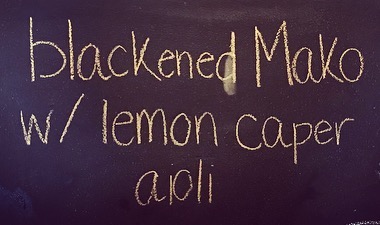 blackened Mako
w/ lemon caper
aioli